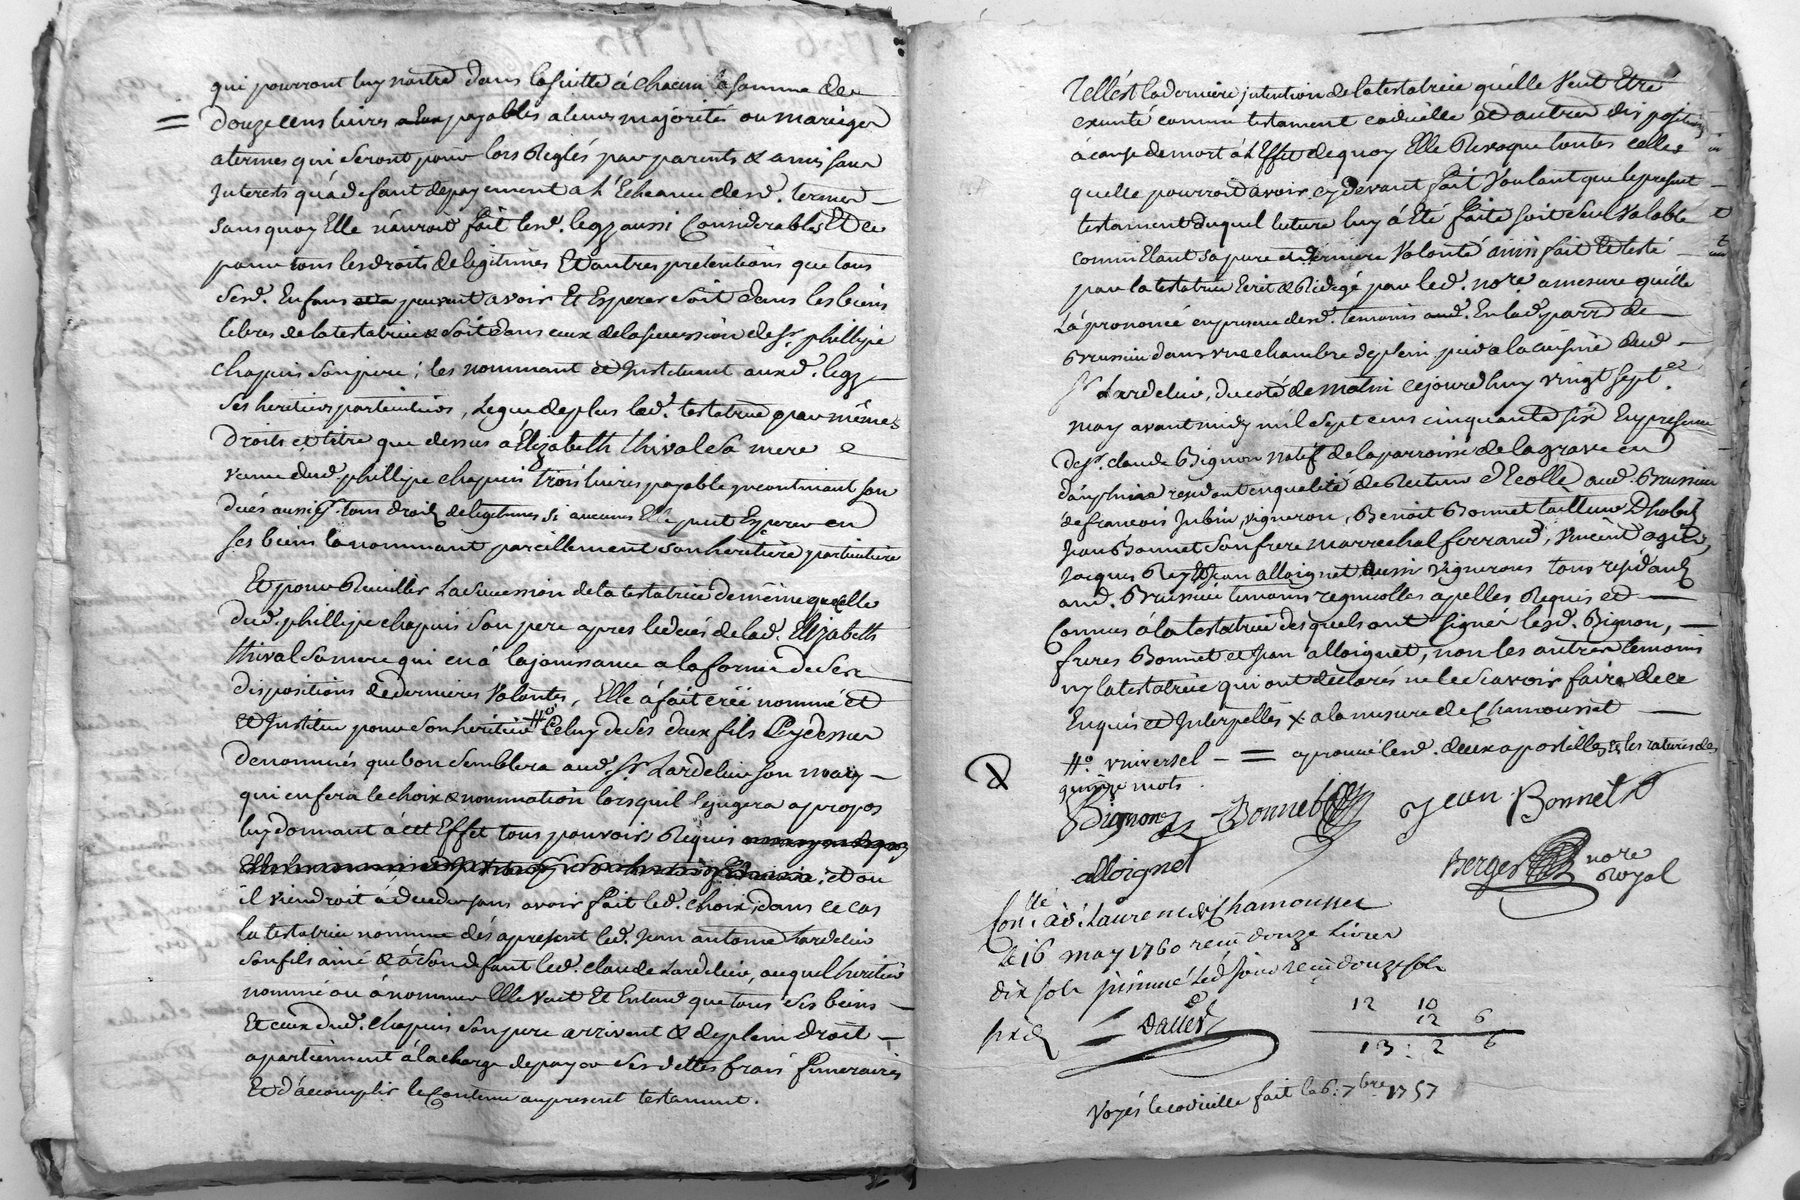 qui pourront luy naitre dans la suitte à chacun la somme de
= douze cens livres payables a leurs majorités ou mariages
a termes qui seront pour lors Reglés par parents & amis sans
Interests qu'à defaut de payement a l'Echeance desd. termes
sans quoy Elle n'auroit fait lesd. legz aussi Considerables Et ce
pour tous les droits de legitimes Et autres pretentions que tous
sesd. Enfans peuvent avoir Et Esperer soit dans les biens
libres de la testatrice & soit dans ceux de la succession de sr. phillipe
chapuis son pere ; les nommant et Instituant auxd. legz
ses heritiers particuliers, Legue de plus lad. testatrice par mêmes
droits et titre que dessus à Elizabeth thival sa mere
veuve dud. phillipe chapuis trois livres payable incontinant son
decés aussi pr. tous droits de legitimes si aucuns Elle peut Esperer en
ses biens la nommant pareillement son heritiere particuliere
Et pour Recuillir La succession de la testatrice de même que celle
dud. phillipe chapuis son pere apres le decés de lad. Elizabeth
thival sa mere qui en à la jouissance a la forme de ses
dispositions de dernieres Volontés, Elle à fait créé nommé et
et Institue pour son heritier #° Celuy de ses deux fils Cy dessus
denommés que bon semblera aud. sr. Lardelier son mary
qui en fera le choix & nomination lorsquil le jugera apropos
luy donnant à cet Effet tous pouvoirs Requis
et ou
il viendroit à deceder sans avoir fait led. choix, dans ce cas
la testatrice nomme dés apresent led. Jean antoine Lardelier
son fils ainé & à son defaut led. claude Lardelier, auquel heritier
nommé ou à nommer Elle veut Et Entend que tous ses biens
Et ceux dud. chapuis son pere arrivent & de plein droit
apartiennent à la charge de payer ses dettes frais funeraires
Et d'accomplir le Contenu au present testament.
Telle est la derniere intention de la testatrice qu'elle veut Etre
executé comme testament codicille et autres dispositions
à cause de mort à l'Effet de quoy Elle Revoque toutes celles
quelle pourroit avoir cy devant fait Voulant que le present
testament duquel lecture luy à Eté faite soit seul valable
comme Etant sa pure et derniere Volonté ainsi fait Et testé
par la testatrice Ecrit & Redigé par led. nore a mesure qu'elle
L'à prononcé en presence desd. temoins aud. En lad. parr. de
Brussieu dans une chambre de plein pied a la cuisine dud.
sr. Lardelier, du coté de matin cejourd'huy vingt sept.e
may avant midy mil sept cens cinquante six En presence
de sr. claude Bignon natif de la parroisse de la grave en
dauphiné residant en qualité de Recteur d'Ecolle aud. Brussieu
de francois Jubin, vigneron, Benoit Bonnet tailleur D'habits
Jean Bonnet son frere marrechal ferrand, Vincent
Jacques Rey Et Jean alloignet aussi vignerons tous residants
aud. Brussieu temoins regnicolles apelles Requis et
Connus à la testatrice desquels ont signés lesd. Bignon,
freres Bonnet et Jean alloignet, non les autres temoins
ny la testatrice qui ont declarés ne le scavoir faire de ce
Enquis et Interpellés x a la mesure de Chamousset
#° universel - = aprouvé lesd. deux apostilles & les ratures de
quinze mots.
Bignon Bonnet Jean Bonnet
alloignet Berger nore Royal
Con.lle à St. Laurent de Chamousset
Le 16 may 1760 recu douze Livres
dix sols insinué Led jour recu douze sols
six d. Dallet
12 10
12 6
13 : 2 6
Voyés le codicille fait le 6: 7bre 1757